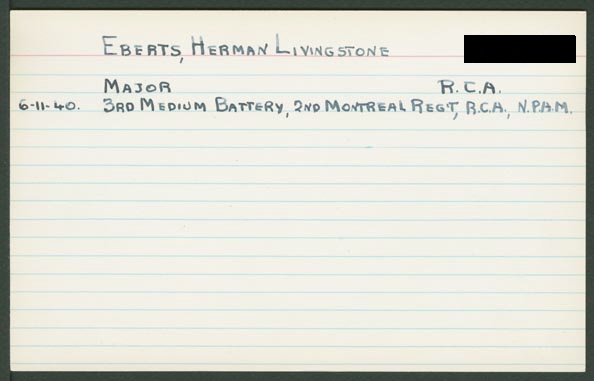 EBERTS, HERMAN LIVINGSTONE
MAJOR R.C.A.
6-11-40. 3RD MEDIUM BATTERY, 2ND MONTREAL REGT, R.C.A., N.P.A.M.